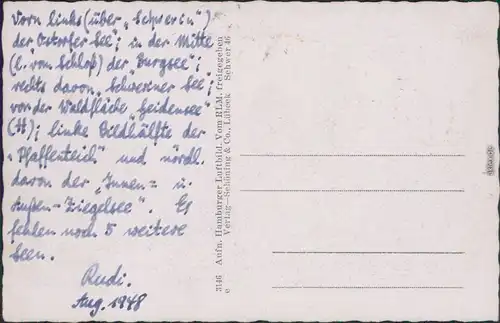 Vorn links (über „Schwerin")
der „Ostorfer See"; in der Mitte
(l. vom Schloß) der „Burgsee";
rechts davon „Schweriner See";
vor der Waldfläche Heidensee"
(H); linke Bildhälfte der
„Pfaffenteich" und nördl.
davon der „Innen- u.
Außen-Ziegelsee". Es
fehlen noch 5 weitere
Seen.
Rudi.
Aug. 1948
3146 Aufn. Hamburger Luftbild. Vom RLM. freigegeben
e Verlag—Schöning & Co., Lübeck Schwer 46